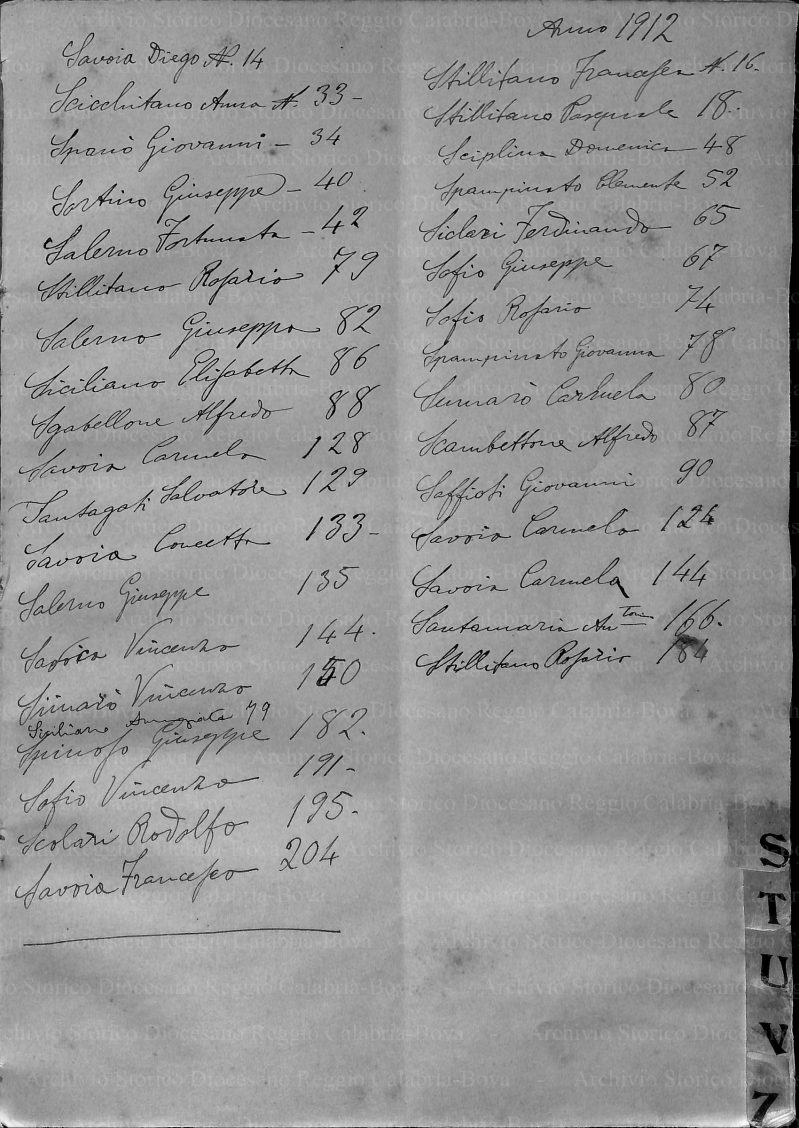 Savoia Diego N. 14
Scicchitano Anna N. 33-
Spanò Giovanni - 34
Sortino Giuseppe - 40
Salerno Fortunata - 42
Stillitano Rosario 79
Salerno Giuseppa 82
Siciliano Elisabetta 86
Sgabellone Alfredo 88
Savoia Carmela 128
Santagati Salvatore 129
Savoia Concetta 133-
Salerno Giuseppe 135
Savoia Vincenzo 144.
Simarò Vincenzo 150
Siciliano Annunziata 79
Spinoso Giuseppe 182.
Sofio Vincenzo 191-
Scolari Rodolfo 195.
Savoia Francesco 204
Anno 1912
Stillitano Francesca N. 16.
Stillitano Pasquale 18.
Sciplina Domenica - 48
Spampinato Clemente 52
Siclari Ferdinando 65
Sofio Giuseppe 67
Sofio Rosario 74
Spampinato Giovanna 78
Sumarò Carmela 80
Scambettone Alfredo 87
Saffioti Giovanni 90
Savoia Carmelo 124
Savoia Carmela 144
Santamaria Anton 166.
Stillitano Rosario 184
S
T
U
V
Z
Archivio Storico Diocesano Reggio Calabria-Bova